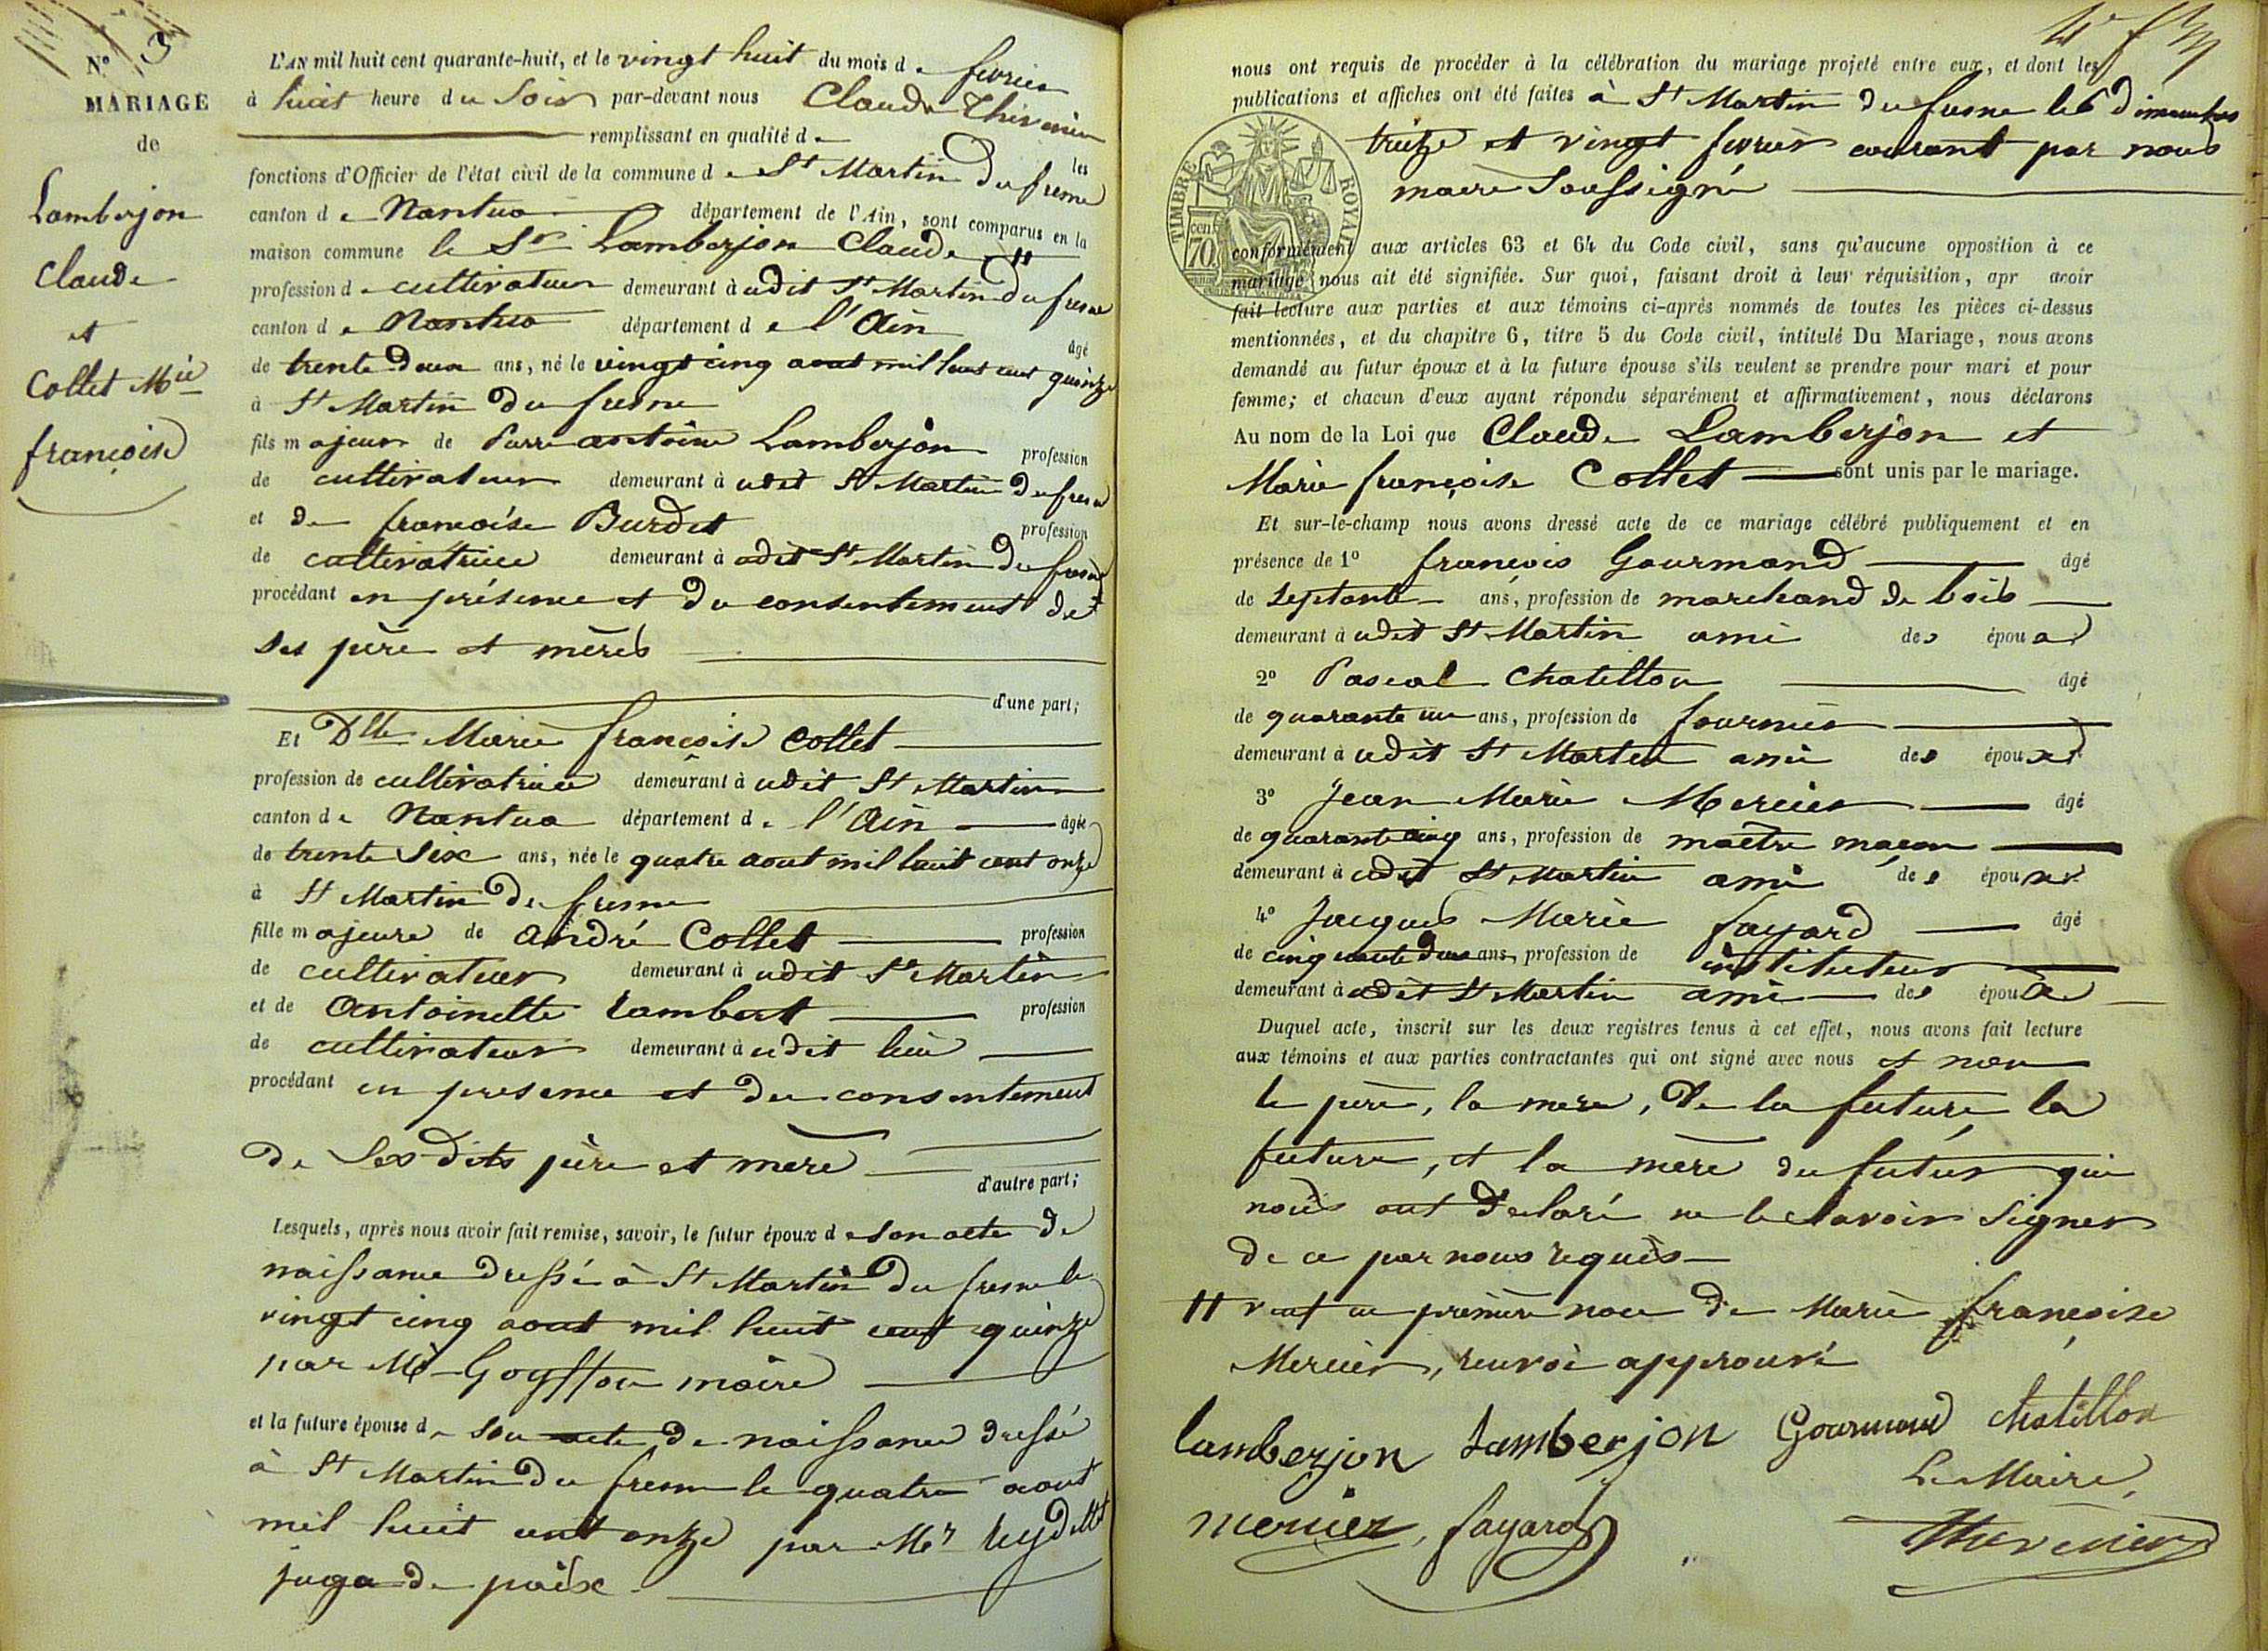 N° 3
MARIAGE
de
Lamberjon
Claude
et
Collet Mie
françoise
L'AN mil huit cent quarante-huit, et le vingt huit du mois de fevrier
à huit heure du soir par-devant nous Claude Thevenin
remplissant en qualité de les
fonctions d'Officier de l'état civil de la commune de St Martin du fresne
canton de Nantua département de l'Ain, sont comparus en la
maison commune le Sr Lamberjon Claude #
profession de cultivateur demeurant à udit St Martin du fresne
canton de Nantua département de l'Ain âgé
de trente deux ans, né le vingt cinq aout mil huit cent quinze
à St Martin du fresne
fils majeur de Pierre antoine Lamberjon profession
de cultivateur demeurant à udit St Martin du fresne
et de françoise Burdet profession
de cultivatrice demeurant à udit St Martin du fresne
procédant en présence et du consentement de
ses père et mères
d'une part;
Et Dlle Marie françoise Collet
profession de cultivatrice demeurant à udit St Martin
canton de Nantua département de l'Ain âgée
de trente six ans, née le quatre aout mil huit cent onze
à St Martin du fresne
fille majeure de André Collet profession
de cultivateur demeurant à udit St Martin
et de Antoinette Lambert profession
de cultivateur demeurant à udit lieu
procédant en presence et du consentement
de ses dits père et mere
d'autre part;
Lesquels, après nous avoir fait remise, savoir, le futur époux de son acte de
naissance dressé à St Martin du fresne le
vingt cinq aout mil huit cent quinze
par Mr Goyffon maire
et la future épouse de son acte de naissance dressé
à St Martin du fresne le quatre aout
mil huit cent onze par Mr Reydellet
juge de paix
nous ont requis de procéder à la célébration du mariage projeté entre eux, et dont les
publications et affiches ont été faites à St Martin du fresne les dimanches
treize et vingt fevrier courant par nous
maire soussigné
TIMBRE ROYAL
70 cent
conformément aux articles 63 et 64 du Code civil, sans qu'aucune opposition à ce
mariage nous ait été signifiée. Sur quoi, faisant droit à leur réquisition, apr avoir
fait lecture aux parties et aux témoins ci-après nommés de toutes les pièces ci-dessus
mentionnées, et du chapitre 6, titre 5 du Code civil, intitulé Du Mariage, nous avons
demandé au futur époux et à la future épouse s'ils veulent se prendre pour mari et pour
femme; et chacun d'eux ayant répondu séparément et affirmativement, nous déclarons
Au nom de la Loi que Claude Lamberjon et
Marie françoise Collet sont unis par le mariage.
Et sur-le-champ nous avons dressé acte de ce mariage célébré publiquement et en
présence de 1° françois Gourmand âgé
de septante ans, profession de marchand de bois
demeurant à udit St Martin ami des époux
2° Pascal Chatillon âgé
de quarante un ans, profession de fournier
demeurant à udit St Martin ami des époux
3° Jean Marie Mercier âgé
de quarante cinq ans, profession de maître maçon
demeurant à udit St Martin ami des époux
4° Jacques Marie fayard âgé
de cinquante deux ans, profession de instituteur
demeurant à udit St Martin ami des époux
Duquel acte, inscrit sur les deux registres tenus à cet effet, nous avons fait lecture
aux témoins et aux parties contractantes qui ont signé avec nous et non
le père, la mere, de la future, la
future, et la mère du futur qui
nous ont déclaré ne le savoir signer
de ce par nous requis
# veuf en première noce de Marie françoise
Mercier, renvoi approuvé
lamberjon Lamberjon Gourmand chatillon
Le Maire,
mercier, fayard Thevenin